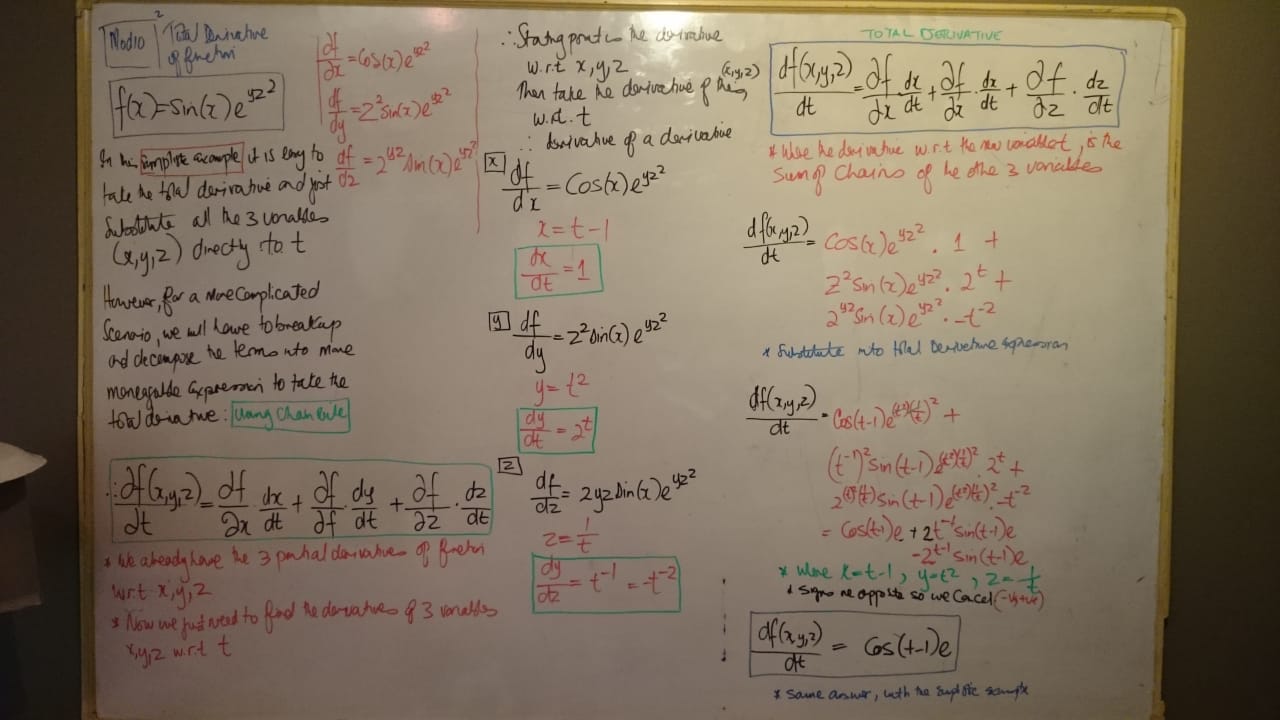 Mod10 2
Total Derivative
of function
f(x)=sin(x)e^{yz^2}
∂f/∂x = Cos(x)e^{yz^2}
df/dy = Z^2 sin(x)e^{yz^2}
df/dz = 2^{yz} sin(x)e^{yz^2}
In this simplistic example it is easy to
take the total derivative and just
Substitute all the 3 variables
(x,y,z) directly to t
However, for a more Complicated
Scenario, we will have to breakup
and decompose the terms into more
manegable expression to take the
total derivative: Using Chain Rule
∴ ∂f(x,y,z)/∂t = ∂f/∂x dx/dt + ∂f/∂f · dy/dt + ∂f/∂z · dz/dt
* We already have the 3 partial derivatives of function
w.r.t x,y,z
* Now we just need to find the derivatives of 3 variables
x,y,z w.r.t t
∴ Stating point is the derivative
w.r.t x,y,z
Then take the derivative of this (x,y,z)
w.r.t. t
∴ derivative of a derivative
x
df/dx = Cos(x)e^{yz^2}
x = t-1
dx/dt = 1
y
df/dy = z^2 sin(x)e^{yz^2}
y = t^2
dy/dt = 2^t
z
df/dz = 2yz sin(x)e^{yz^2}
z = 1/t
dy/dz = t^{-1} = -t^{-2}
TOTAL DERIVATIVE
df(x,y,z)/dt = ∂f/∂x dx/dt + ∂f/∂x · dx/dt + ∂f/∂z · dz/dt
* Where the derivative w.r.t the new variable t, is the
Sum of Chains of the othe 3 variables
df(x,y,z)/dt = Cos(x)e^{yz^2} · 1 +
Z^2 Sin(x)e^{yz^2} · 2^t +
2^{yz} Sin(x)e^{yz^2} · -t^{-2}
* Substitute into total Derivative expression
df(x,y,z)/dt = Cos(t-1)e^{(t^2)(1/t)^2} +
(t^{-1})^2 sin(t-1)e^{(t^2)(1/t)^2} · 2^t +
2^{(t^2)(1/t)} sin(t-1)e^{(t^2)(1/t)^2} · -t^{-2}
= Cos(t-1)e + 2t^{-1} sin(t-1)e
-2^{t-1} sin(t-1)e
* Where x=t-1, y=t^2, z=1/t
* Signs are opposite so we Cancel (-ve+ve)
df(x,y,z)/dt = Cos(t-1)e
* Same answer, with the